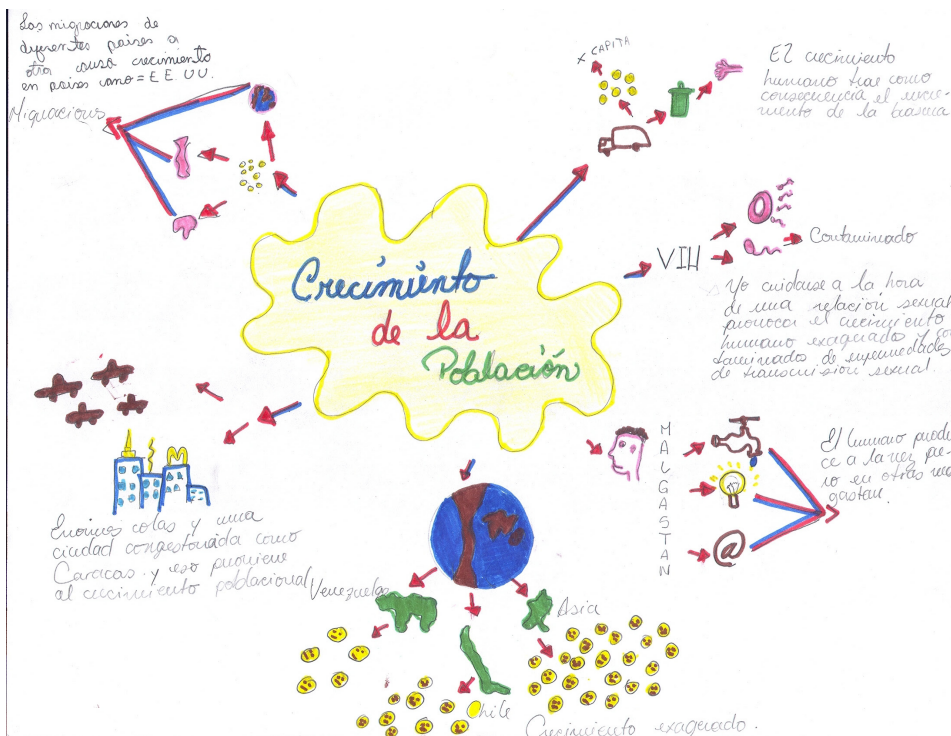 Las migraciones de
diferentes paises a
otra causa crecimiento
en paises como = E.E.U.U.
Migraciones
x CAPITA
El crecimiento
humano trae como
consecuencia el incre-
mento de la basura
Crecimiento
de la
Población
VIH
Contaminado
No cuidarse a la hora
de una relación sexual
provoca el crecimiento
humano exagerado y con
taminados de enfermedades
de transmisión sexual
MALGASTAN
@
El humano produ
ce a la vez pe-
ro en otras mal
gastan.
Enormes colas y una
ciudad congestionada como
Caracas y eso proviene
al crecimiento poblacional
Venezuela
Asia
Chile
Crecimiento exagerado.